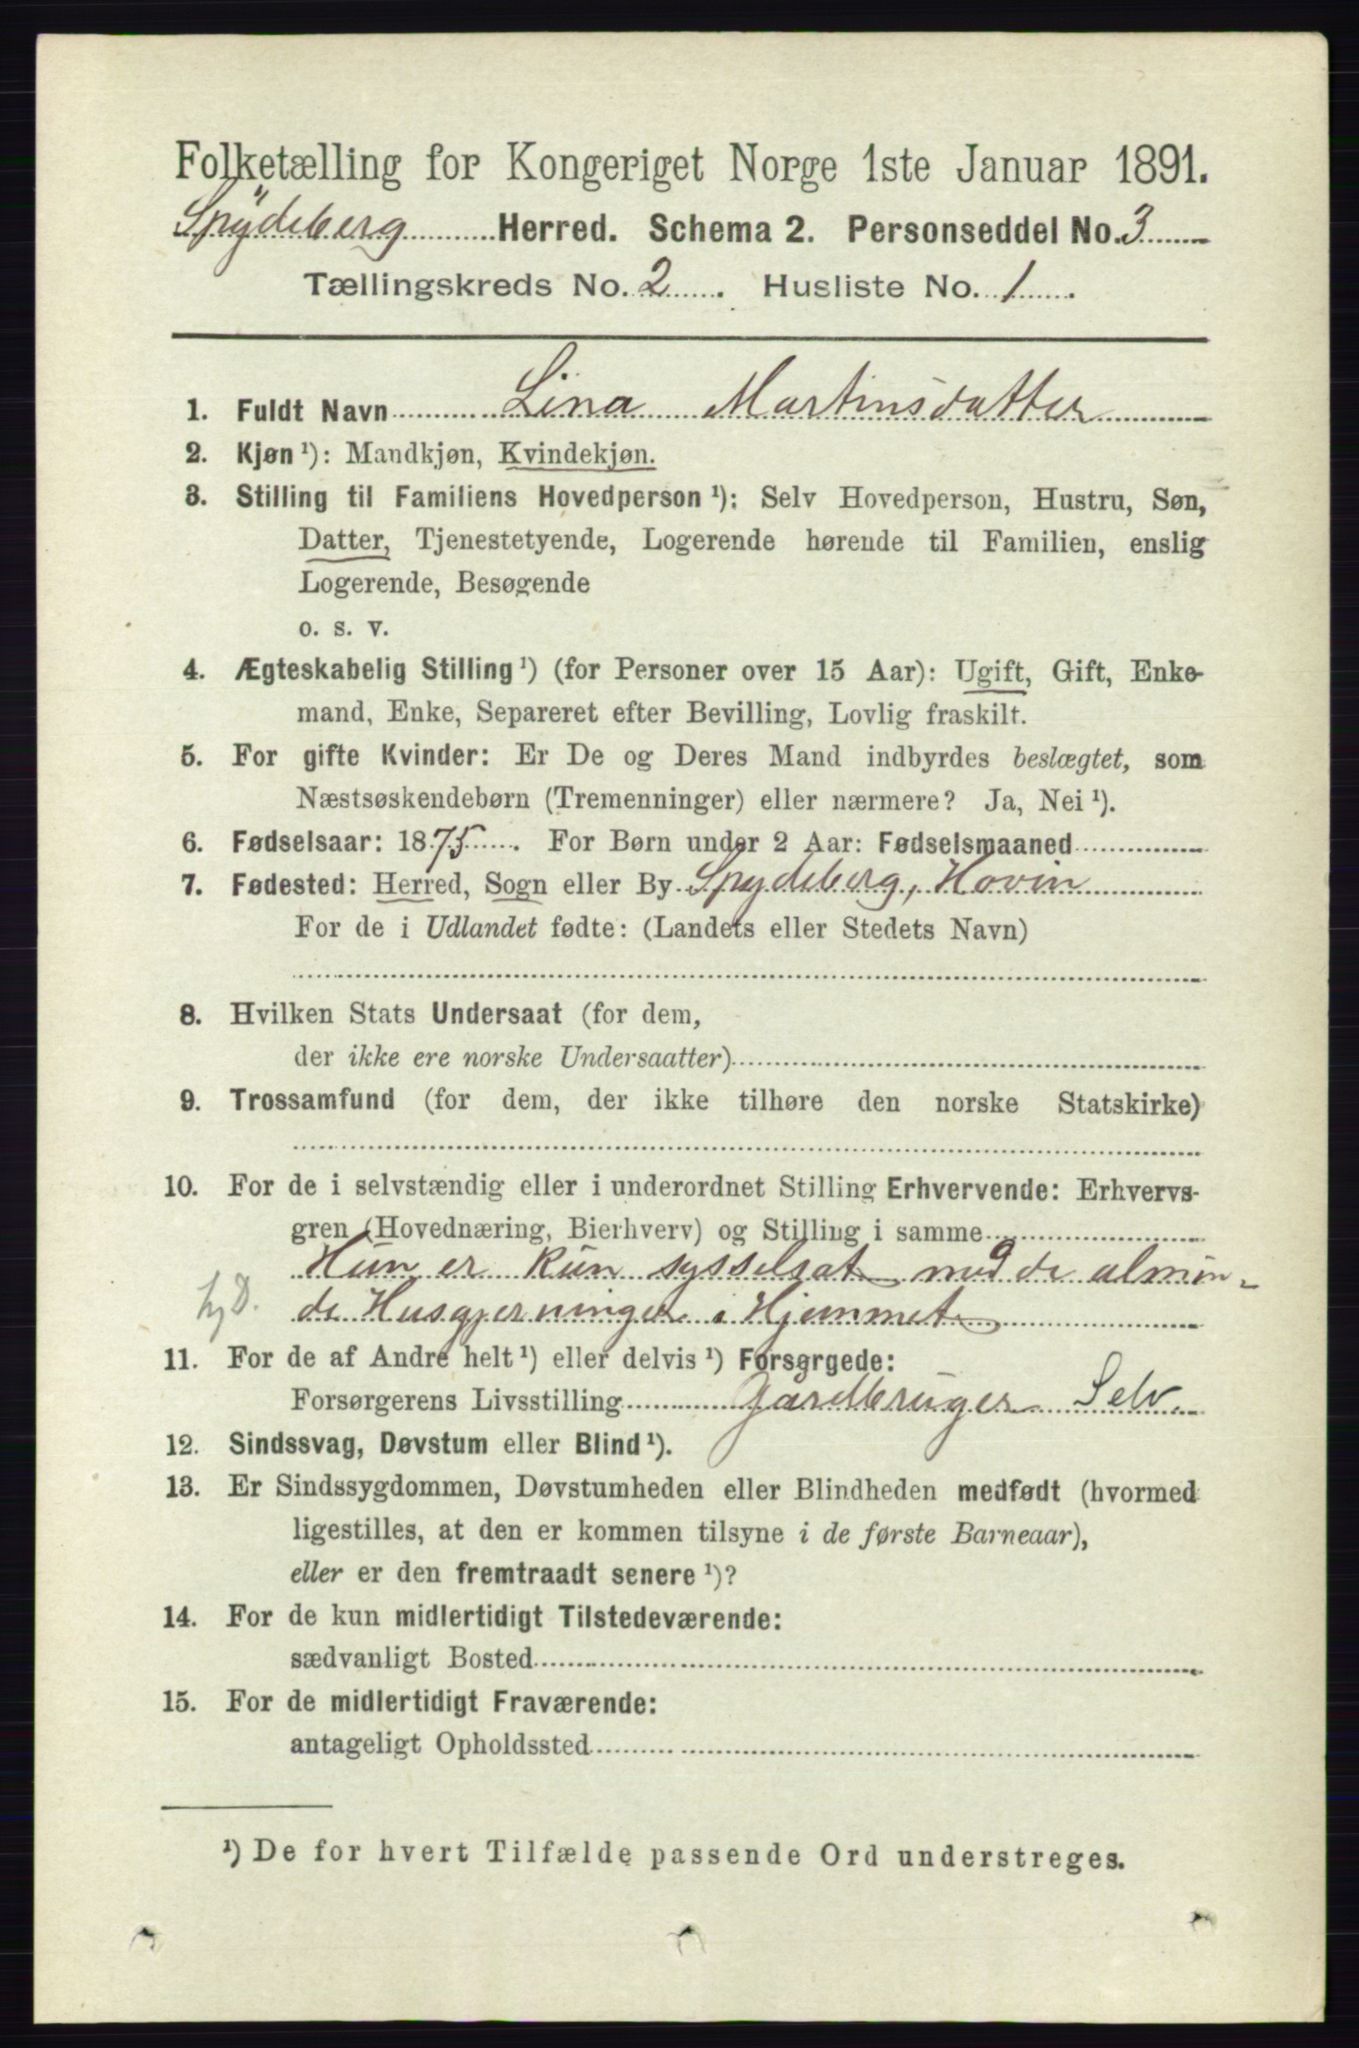 Folketælling for Kongeriget Norge 1ste Januar 1891.
Spÿdeberg Herred. Schema 2. Personseddel No. 3
Tællingskreds No. 2. Husliste No. 1.
1. Fuldt Navn Lina Martinsdatter
2. Kjøn ¹): Mandkjøn, Kvindekjøn.
3. Stilling til Familiens Hovedperson ¹): Selv Hovedperson, Hustru, Søn,
Datter, Tjenestetyende, Logerende hørende til Familien, enslig
Logerende, Besøgende
o. s. v.
4. Ægteskabelig Stilling ¹) (for Personer over 15 Aar): Ugift, Gift, Enke-
mand, Enke, Separeret efter Bevilling, Lovlig fraskilt.
5. For gifte Kvinder: Er De og Deres Mand indbyrdes beslægtet, som
Næstsøskendebørn (Tremenninger) eller nærmere? Ja, Nei ¹).
6. Fødselsaar: 1875. For Børn under 2 Aar: Fødselsmaaned
7. Fødested: Herred, Sogn eller By Spydeberg, Hovin
For de i Udlandet fødte: (Landets eller Stedets Navn)
8. Hvilken Stats Undersaat (for dem,
der ikke ere norske Undersaatter)
9. Trossamfund (for dem, der ikke tilhøre den norske Statskirke)
10. For de i selvstændig eller i underordnet Stilling Erhvervende: Erhvervs-
gren (Hovednæring, Bierhverv) og Stilling i samme
Hun er kun sysselsat med de almin-
de Husgjerninger i Hjemmet
11. For de af Andre helt ¹) eller delvis ¹) Forsørgede:
Forsørgerens Livsstilling Gårdbruger Selv.
12. Sindssvag, Døvstum eller Blind ¹).
13. Er Sindssygdommen, Døvstumheden eller Blindheden medfødt (hvormed
ligestilles, at den er kommen tilsyne i de første Barneaar),
eller er den fremtraadt senere ¹)?
14. For de kun midlertidigt Tilstedeværende:
sædvanligt Bosted
15. For de midlertidigt Fraværende:
antageligt Opholdssted
¹) De for hvert Tilfælde passende Ord understreges.